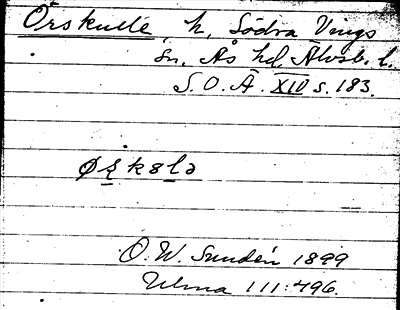 Örskulle, h, Södra Vings
sn, Ås hd, Älvsb. l.
S. O. Ä. XIV s. 183.
Øṣkoḷə
O. W. Sundén 1899
Ulma 111:496.